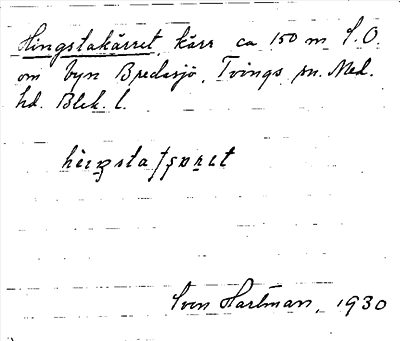 Hingstakärret, kärr ca 150 m S.O.
om byn Bredasjö, Tvings sn. Med.
hd. Blek. l.
Sven Hartman, 1930